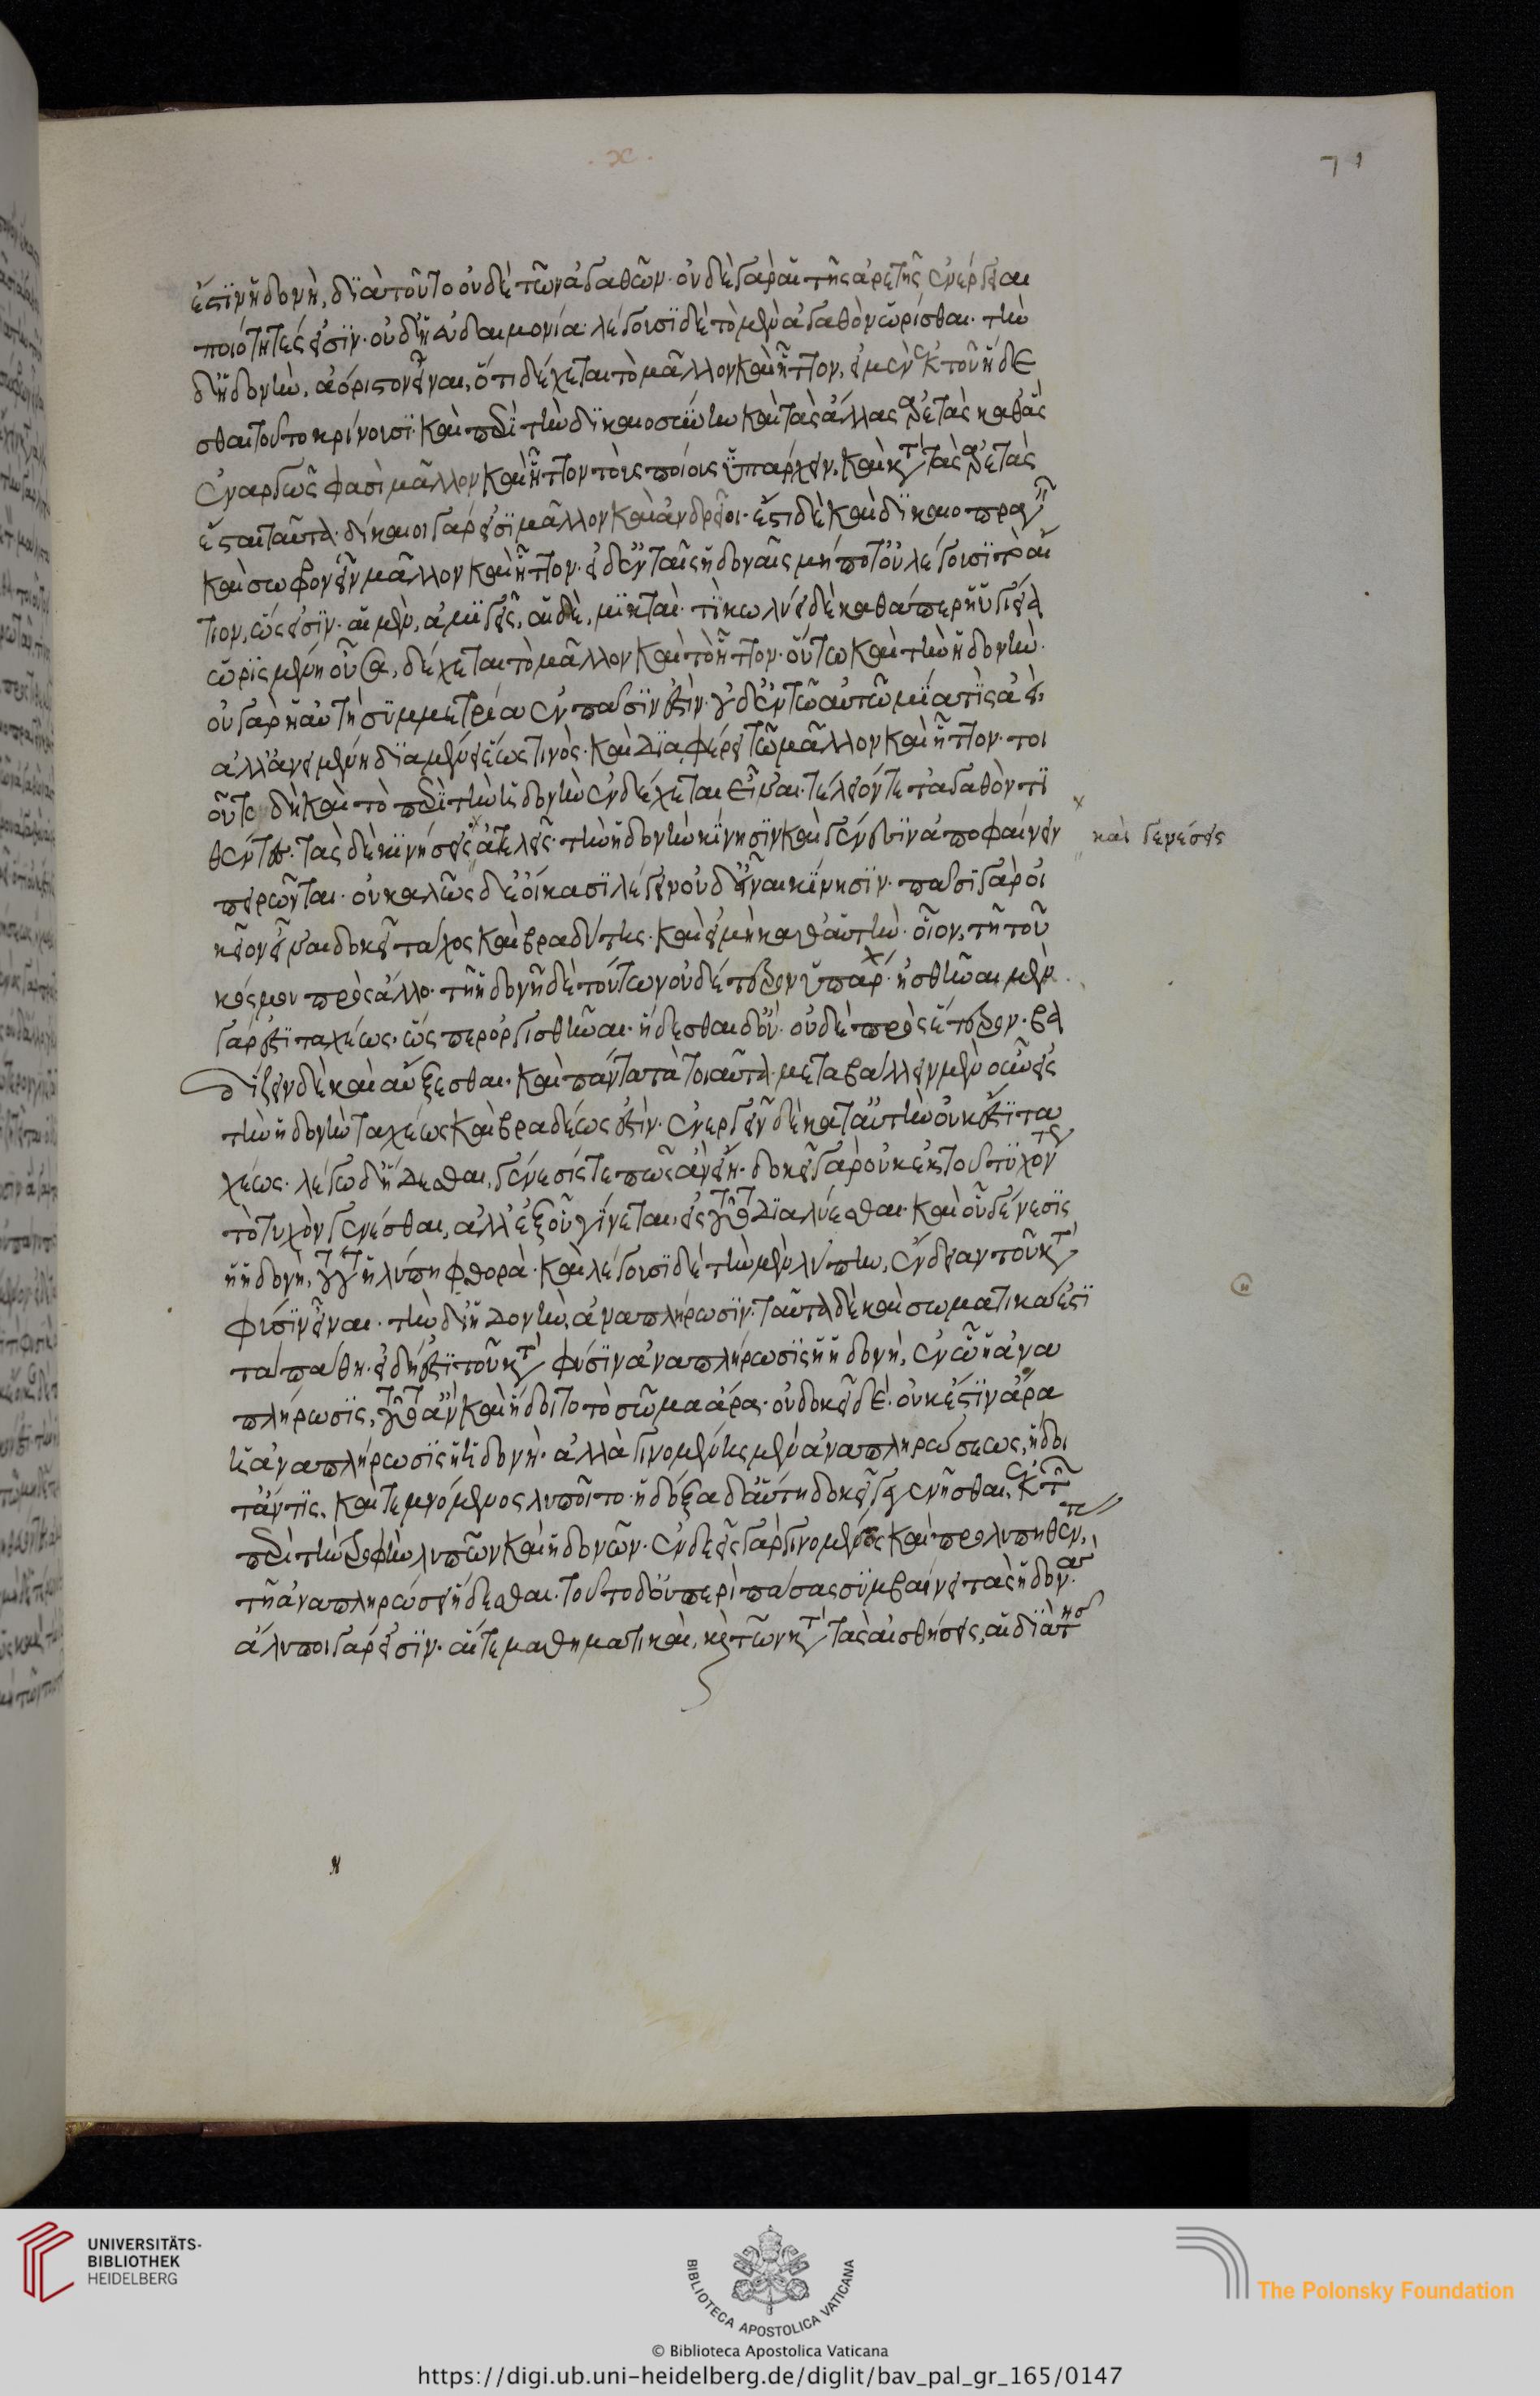 ἐστὶν ἡδονὴ, διὰ τοῦτο οὐδὲ τῶν ἀγαθῶν· οὐδὲ γὰρ αἱ τῆς ἀρετῆς ἐνέργειαι
ποιότητές εἰσιν· οὐδ' ἡ εὐδαιμονία· λέγουσι δὲ τὸ μὲν ἀγαθὸν ὡρίσθαι· τὴν
δ' ἡδονὴν, ἀόριστον εἶναι, ὅτι δέχεται τὸ μᾶλλον καὶ ἧττον, εἰ μὲν ἐκ τοῦ ἥδε
σθαι τοῦτο κρίνουσι· καὶ περὶ τὴν δικαιοσύνην καὶ τὰς ἄλλας ἀρετὰς καθ' ἃς
ἐναργῶς φασὶ μᾶλλον καὶ ἧττον τοὺς ποίους ὑπάρχειν, καὶ κατὰ τὰς ἀρετὰς
ἔσται ταῦτα· δίκαιοι γάρ εἰσι μᾶλλον καὶ ἀνδρεῖοι· ἔστι δὲ καὶ δικαιοπραγεῖν
καὶ σωφρονεῖν μᾶλλον καὶ ἧττον· εἰ δ' ἐν ταῖς ἡδοναῖς μήποτ' οὐ λέγουσι τὸ αἴ
τιον, ὥς εἰσιν· αἱ μὲν, ἀμιγεῖς, αἱ δὲ, μικταὶ· τί κωλύει δὲ καθάπερ ἡ ὑγίεια
ὡρισμένη οὖσα, δέχεται τὸ μᾶλλον καὶ τὸ ἧττον· οὕτω καὶ τὴν ἡδονὴν·
οὐ γὰρ ἡ αὐτὴ συμμετρία ἐν πᾶσίν ἐστιν· οὐδ' ἐν τῷ αὐτῷ μία τις ἀεὶ·
ἀλλ' ἀνειμένη διαμένει ἕως τινὸς· καὶ διαφέρει τῷ μᾶλλον καὶ ἧττον· τοι
οῦτο δὴ καὶ τὸ περὶ τὴν ἡδονὴν ἐνδέχεται εἶναι· τέλειόν τε τἀγαθὸν τι
θέντες· τὰς δὲ κινήσεις ἀτελεῖς· τὴν ἡδονὴν κίνησιν καὶ γένεσιν ἀποφαίνειν
καὶ γενέσεις
πειρῶνται· οὐ καλῶς δ' ἐοίκασι λέγειν οὐδ' εἶναι κίνησιν· πάσῃ γὰρ οἰ
κεῖον εἶναι δοκεῖ τάχος καὶ βραδύτης· καὶ εἰ μὴ καθ' αὑτὴν· οἷον, τῇ τοῦ
κόσμου πρὸς ἄλλο· τῇ ἡδονῇ δὲ τούτων οὐδέτερον ὑπάρχει· ἡσθῆναι μὲν
γὰρ ἔστι ταχέως· ὥσπερ ὀργισθῆναι· ἥδεσθαι δ' οὔ· οὐδὲ πρὸς ἕτερον· βα
δίζειν δὲ καὶ αὔξεσθαι· καὶ πάντα τὰ τοιαῦτα· μεταβάλλειν μὲν οὖν εἰς
τὴν ἡδονὴν ταχέως καὶ βραδέως ἔστιν· ἐνεργεῖν δὲ κατ' αὐτὴν οὐκ ἔστι τα
χέως· λέγω δ' ἥδεσθαι, γένεσίς τε πῶς ἂν εἴη· δοκεῖ γὰρ οὐκ ἐκ τοῦ τυχόντος
τὸ τυχὸν γενέσθαι, ἀλλ' ἐξ οὗ γίνεται, εἰς τοῦτο διαλύεσθαι· καὶ οὗ γένεσις
ἡ ἡδονὴ, τούτου ἡ λύπη φθορὰ· καὶ λέγουσι δὲ τὴν μὲν λύπην, ἔνδειαν τοῦ κατὰ
φύσιν εἶναι· τὴν δ' ἡδονὴν, ἀναπλήρωσιν· ταῦτα δὲ καὶ σωματικά ἐστι
τὰ πάθη· εἰ δή ἐστι τοῦ κατὰ φύσιν ἀναπλήρωσις ἡ ἡδονὴ, ἐν ᾧ ἡ ἀνα
πλήρωσις, τοῦτο ἂν καὶ ἥδοιτο τὸ σῶμα ἄρα· οὐ δοκεῖ δὲ· οὐκ ἔστιν ἄρα
ἡ ἀναπλήρωσις ἡ ἡδονὴ· ἀλλὰ γινομένης μὲν ἀναπληρώσεως, ἥδοι
τ' ἄν τις, καὶ τεμνόμενος λυποῖτο· ἡ δόξα δ' αὕτη δοκεῖ γεγενῆσθαι, ἐκ τῶν
περὶ τὴν τροφὴν λυπῶν καὶ ἡδονῶν· ἐνδεεῖς γὰρ γινομένους καὶ προλυπηθέντας,
τῇ ἀναπληρώσει ἥδεσθαι· τοῦτο δ' οὐ περὶ πάσας συμβαίνει τὰς ἡδονάς·
ἄλυποι γάρ εἰσιν· αἵ τε μαθηματικαὶ, καὶ τῶν κατὰ τὰς αἰσθήσεις, αἱ διὰ τῆς
UNIVERSITÄTS-
BIBLIOTHEK
HEIDELBERG
BIBLIOTECA APOSTOLICA VATICANA
The Polonsky Foundation
© Biblioteca Apostolica Vaticana
https://digi.ub.uni-heidelberg.de/diglit/bav_pal_gr_165/0147